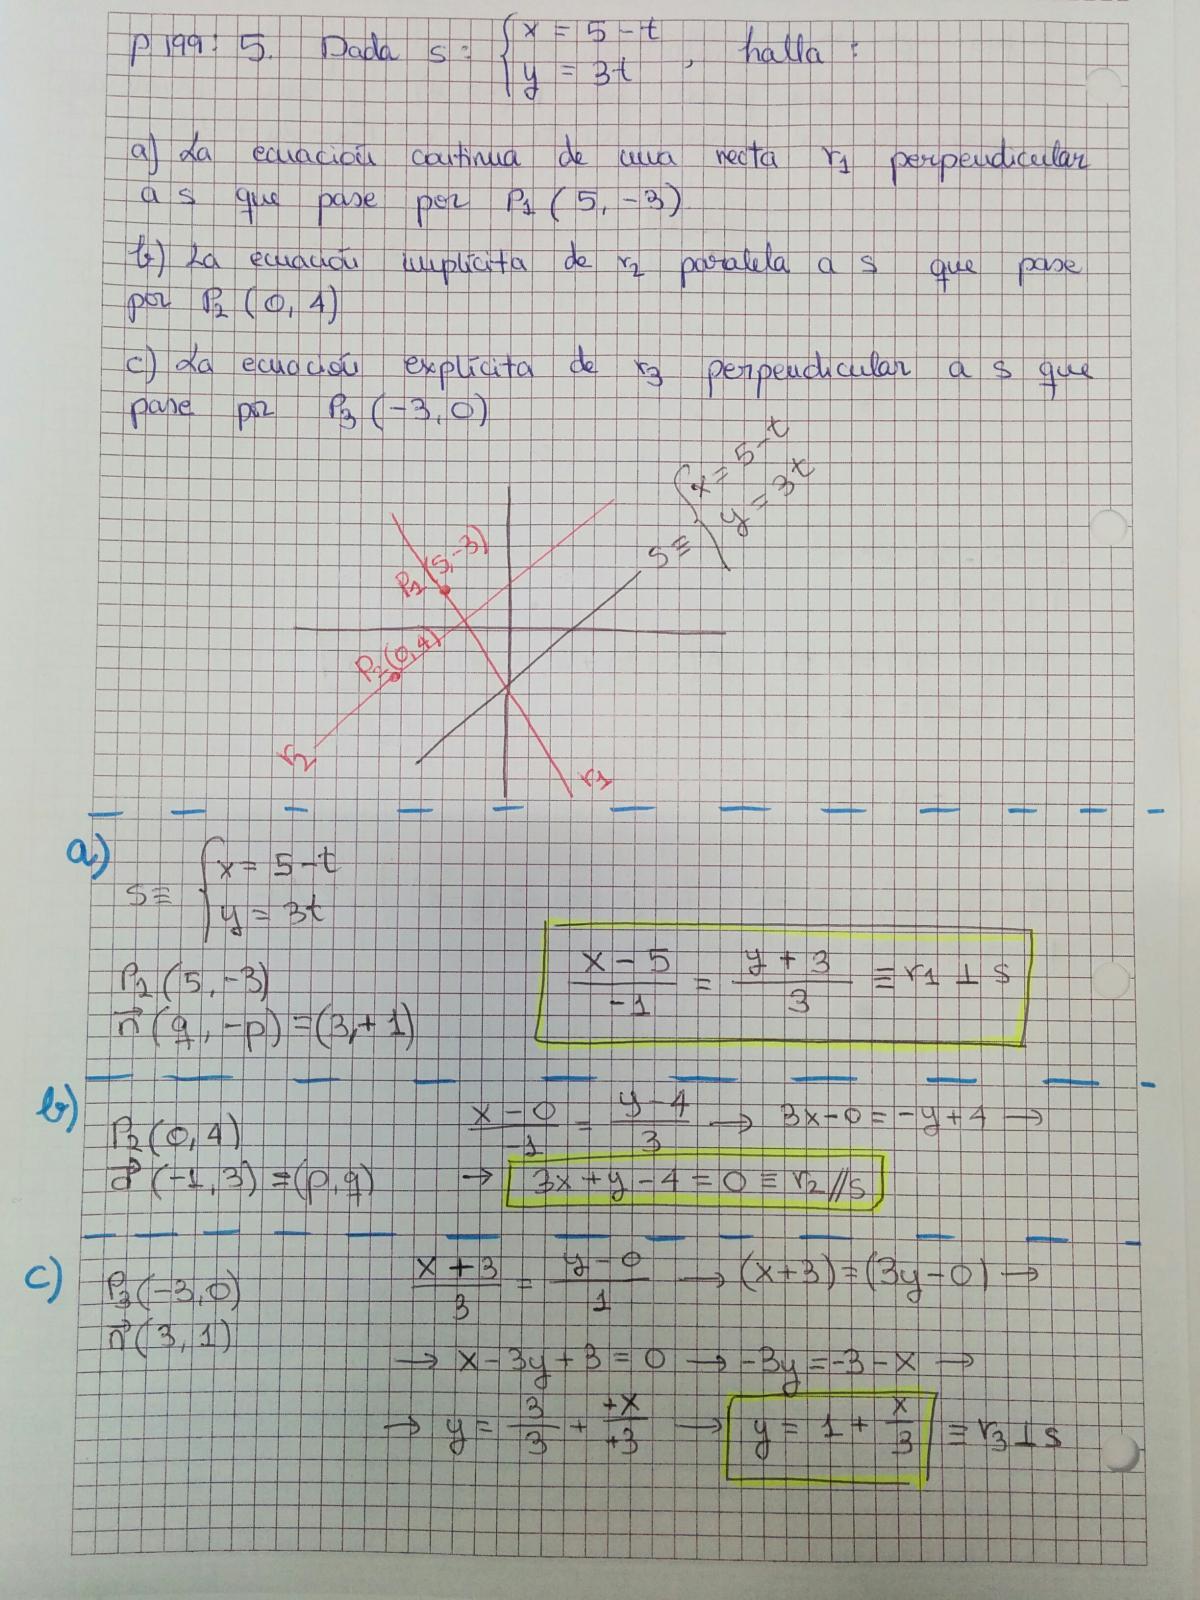 p 199: 5. Dada s: { x = 5 - t
y = 3t , halla:
a) La ecuación continua de una recta r1 perpendicular
a s que pase por P1 (5, -3)
b) La ecuación implícita de r2 paralela a s que pase
por P2 (0, 4)
c) La ecuación explícita de r3 perpendicular a s que
pase por P3 (-3, 0)
s ≡ { x = 5 - t
y = 3t
P1 (5, -3)
P2 (0, 4)
r2
r1
a)
s ≡ { x = 5 - t
y = 3t
P2 (5, -3)
n⃗ (q, -p) = (3, +1)
(x - 5)/-1 = (y + 3)/3 ≡ r1 ⊥ s
b)
P2 (0, 4)
d⃗ (-1, 3) = (p, q)
(x - 0)/-1 = (y - 4)/3 → 3x - 0 = -y + 4 →
→ 3x + y - 4 = 0 ≡ r2 // s
c)
P3 (-3, 0)
n⃗ (3, 1)
(x + 3)/3 = (y - 0)/1 → (x + 3) = (3y - 0) →
→ x - 3y + 3 = 0 → -3y = -3 - x →
→ y = 3/3 + +x/+3 → y = 1 + x/3 ≡ r3 ⊥ s